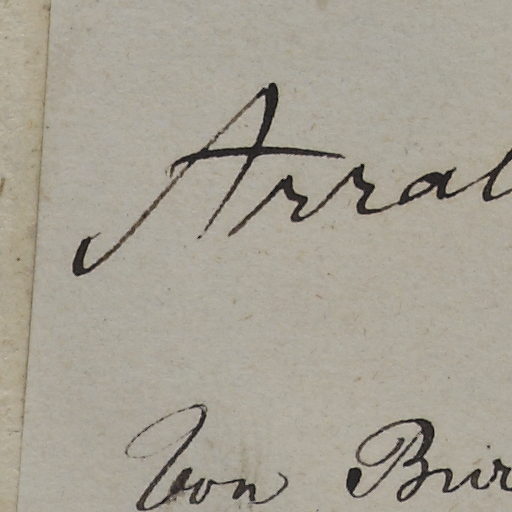 Arral
Von Bur